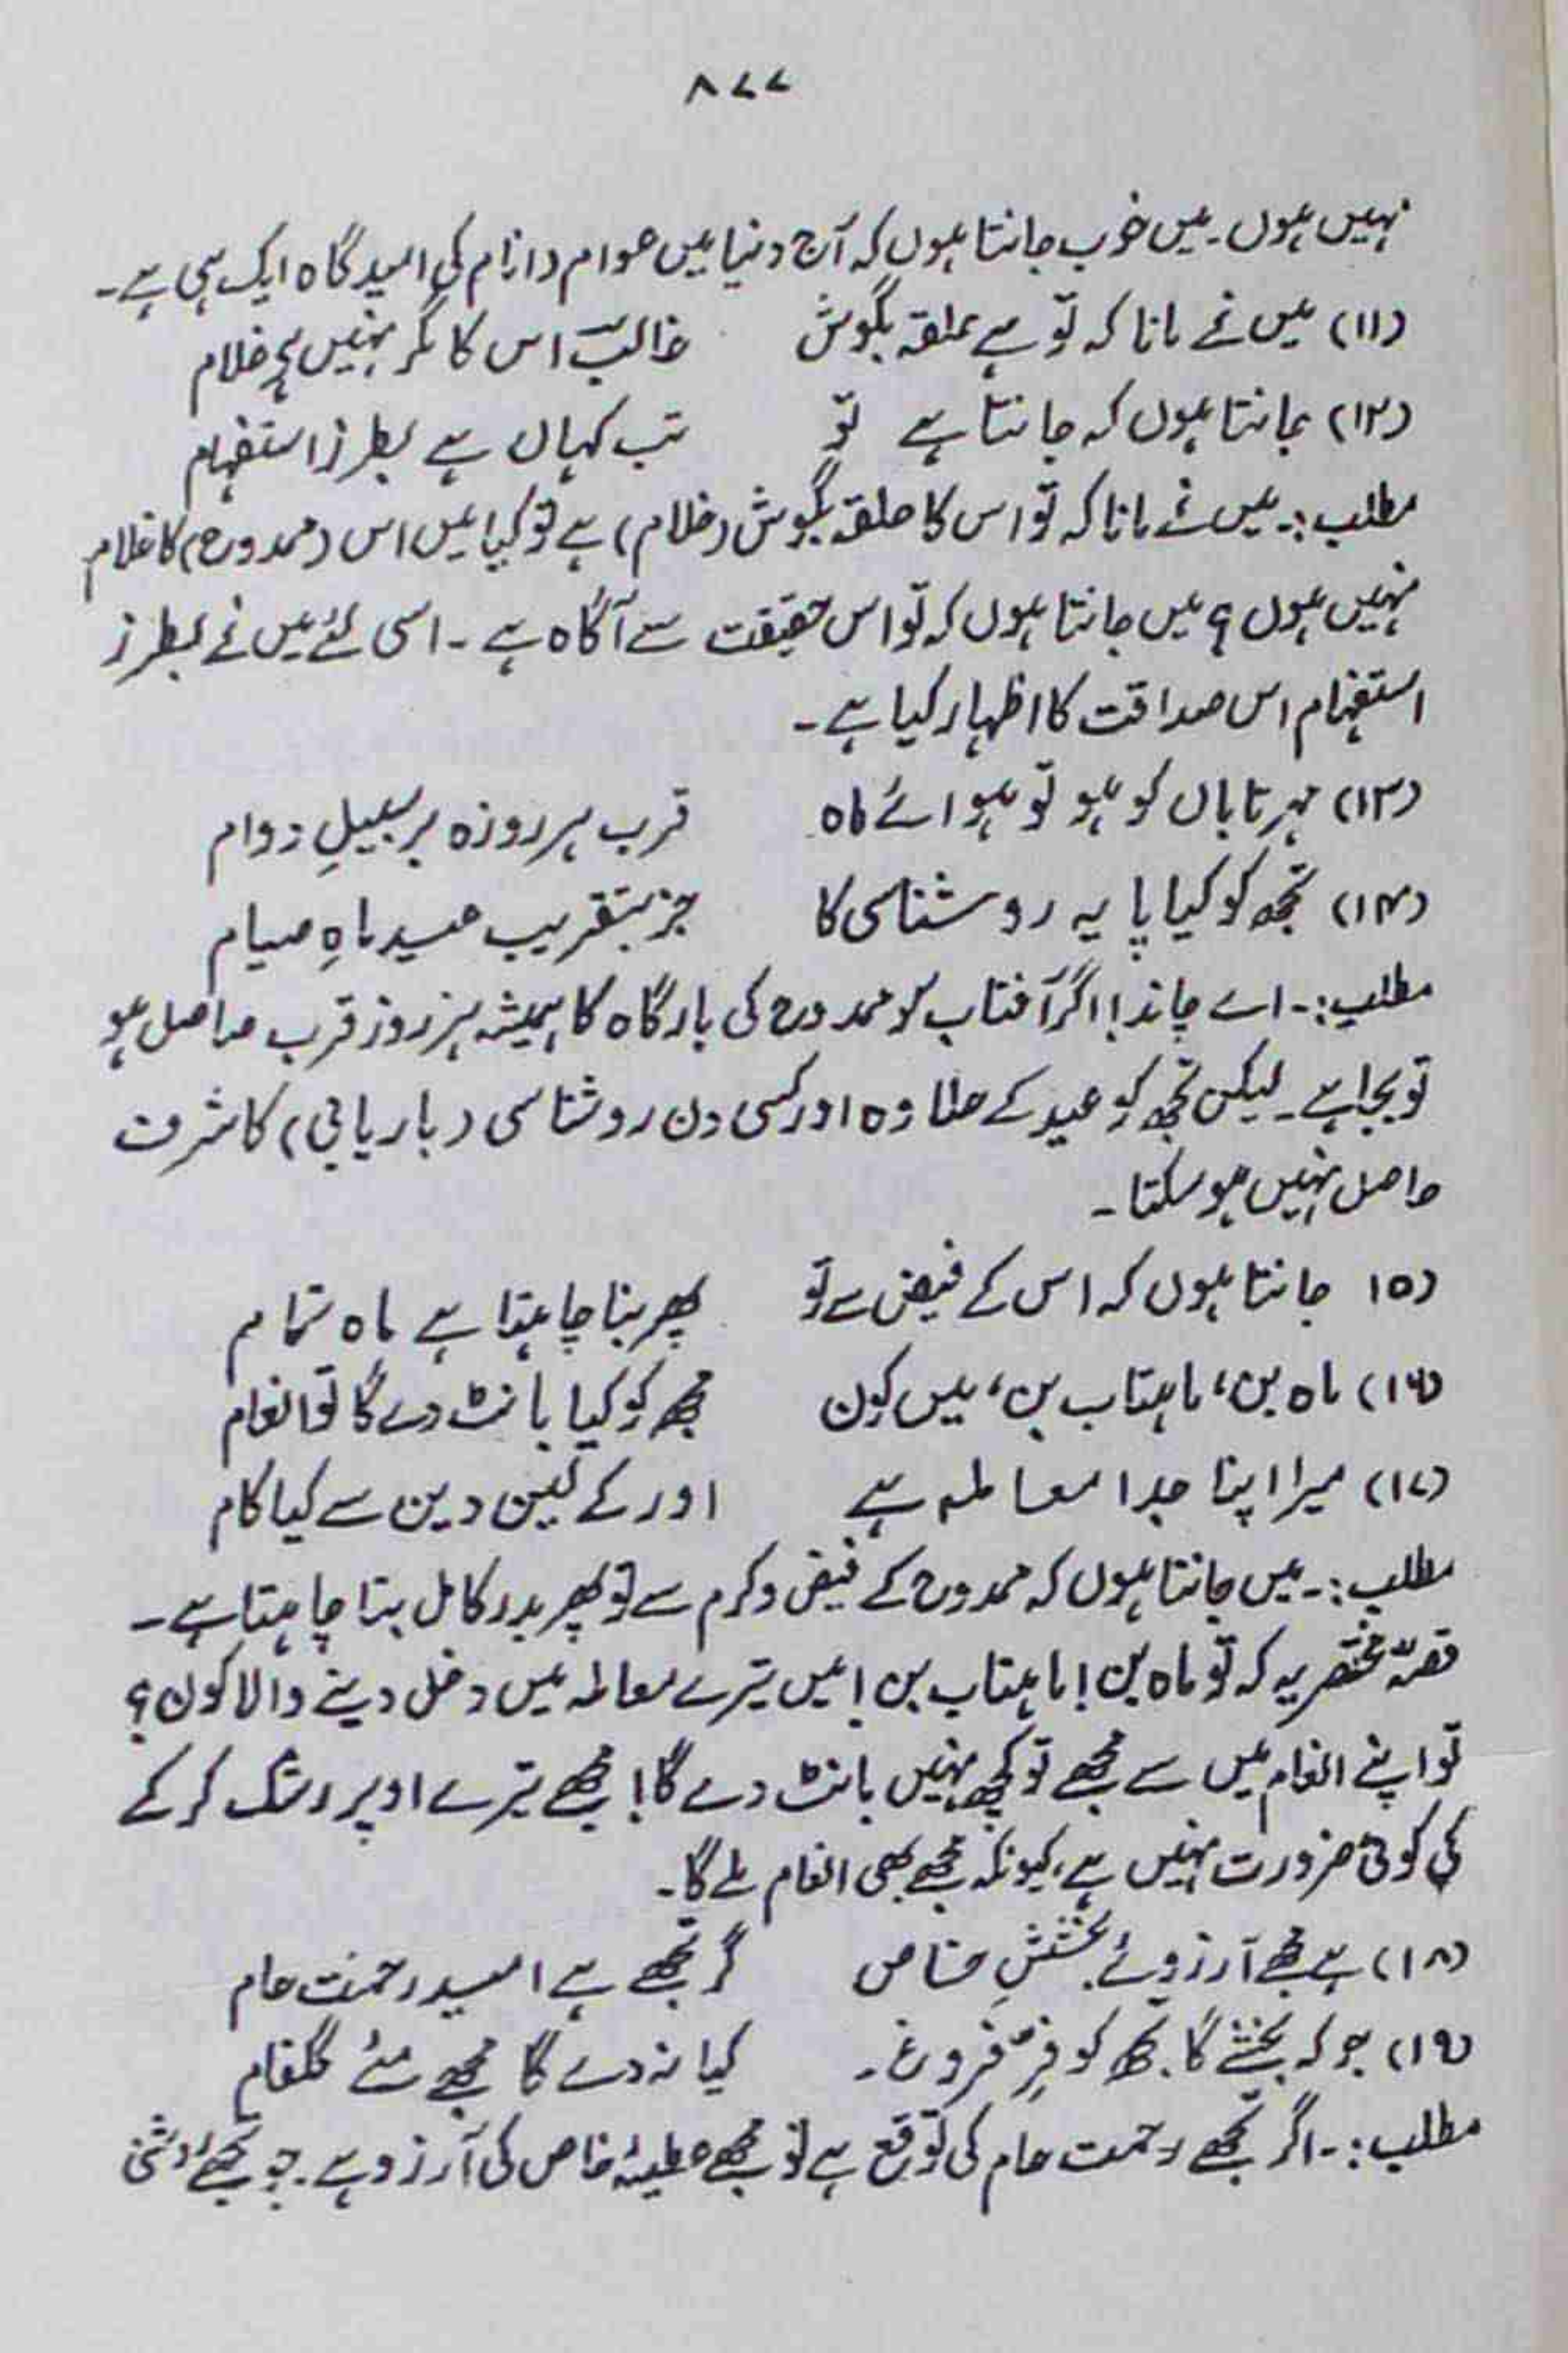 ۸۷۷
نہیں ہوں۔ میں خوب جانتا ہوں کہ آج دنیا میں عوام و انام کی امید گاہ ایک ہی ہے۔
(۱۱) میں نے مانا کہ تو ہے حلقہ بگوش غالبؔ اس کا مگر نہیں ہے غلام
(۱۲) جانتا ہوں کہ جانتا ہے تو تب کہاں ہے بطرز استفہام
مطلب:۔ میں نے مانا کہ تو اس کا حلقہ بگوش (غلام) ہے تو کیا میں اس (ممدوح) کا غلام
نہیں ہوں؟ میں جانتا ہوں کہ تو اس حقیقت سے آگاہ ہے۔ اسی لئے میں نے بطرز
استفہام اس صداقت کا اظہار کیا ہے۔
(۱۳) مہر تاباں کو ہو تو ہو اے ماہ قرب ہر روزہ بر سبیلِ دوام
(۱۴) تجھ کو کیا پایہ روشناسی کا جز بتقریب عید ماہِ صیام
مطلب:۔ اے چاند! اگر آفتاب کو ممدوح کی بارگاہ کا ہمیشہ ہر روز قرب حاصل ہو
تو بجا ہے۔ لیکن تجھ کو عید کے علاوہ اور کسی دن روشناسی (باریابی) کا شرف
حاصل نہیں ہو سکتا۔
(۱۵ جانتا ہوں کہ اس کے فیض سے تو پھر بنا چاہتا ہے ماہ تمام
(۱۶) ماہ بن، ماہتاب بن، میں کون مجھ کو کیا بانٹ دے گا تو انعام
(۱۷) میرا اپنا جدا معاملہ ہے اور کے لین دین سے کیا کام
مطلب:۔ میں جانتا ہوں کہ ممدوح کے فیض و کرم سے تو پھر بدر کامل بننا چاہتا ہے۔
قصہّ مختصر یہ کہ تو ماہ بن! ماہتاب بن! میں تیرے معاملہ میں دخل دینے والا کون؟
تو اپنے انعام میں سے مجھے تو کچھ نہیں بانٹ دے گا! مجھے تیرے اوپر رشک کر کے
کی کوئی ضرورت نہیں ہے، کیونکہ مجھے بھی انعام ملے گا۔
(۱۸) ہے مجھے آرزوئے بخششِ خاص گر تجھے ہے امید رحمت عام
(۱۹) جو کہ بخشے گا تجھ کو فرِّ فروغ۔ کیا نہ دے گا مجھے مئے گلفام
مطلب:۔ اگر تجھے رحمت عام کی توقع ہے تو مجھے عطیۂ خاص کی آرزو ہے۔ جو تجھے روشنی